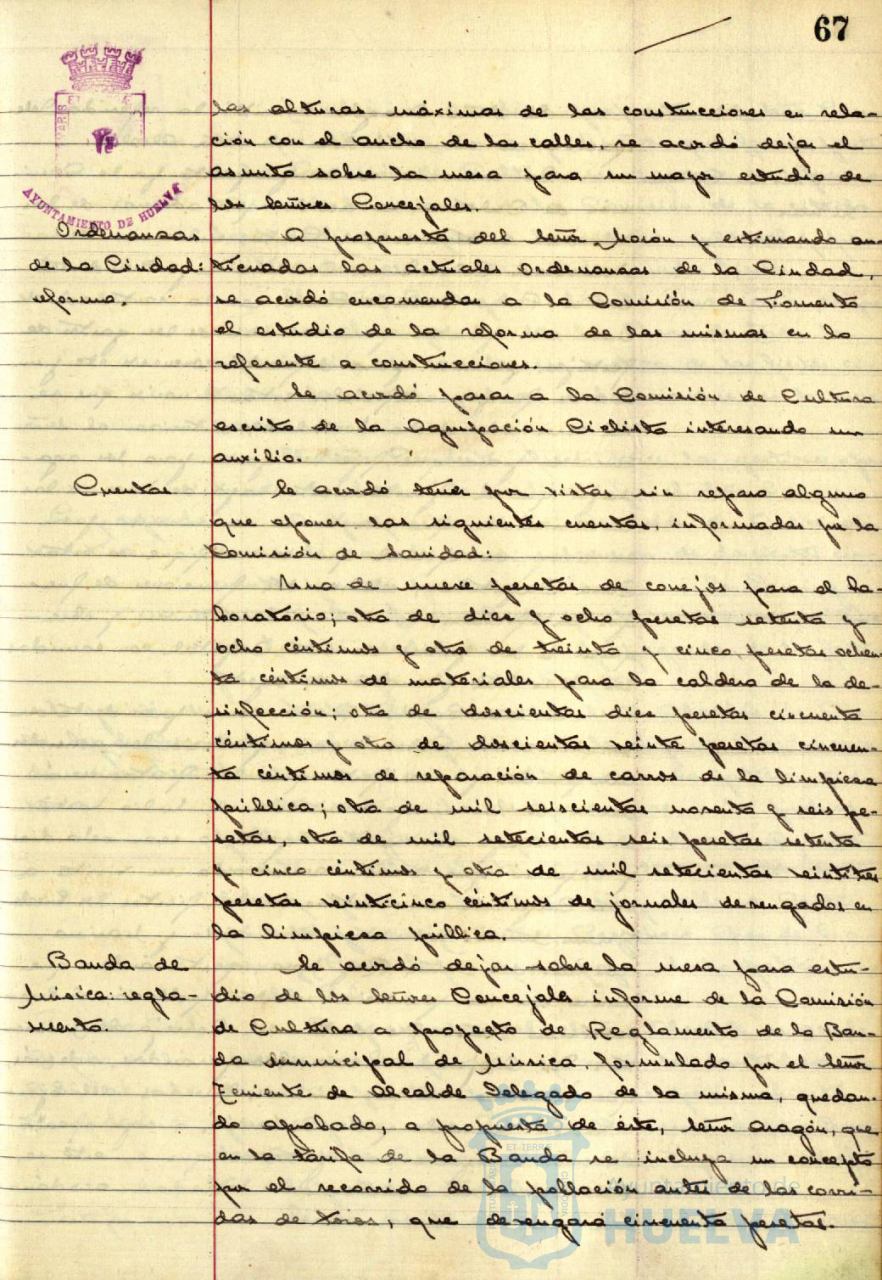 67
las alturas máximas de las construcciones en rela-
ción con el ancho de las calles, se acordó dejar el
asunto sobre la mesa para un mayor estudio de
los señores Concejales.
AYUNTAMIENTO DE HUELVA
Ordenanzas
de la Ciudad:
reforma.
A propuesta del señor Morón y estimando an-
ticuadas las actuales Ordenanzas de la Ciudad,
se acordó encomendar a la Comisión de Fomento
el estudio de la reforma de las mismas en lo
referente a construcciones.
Se acordó pasar a la Comisión de Cultura
escrito de la Agrupación Ciclista interesando un
auxilio.
Cuentas
Se acordó tener por vistas sin reparo alguno
que oponer las siguientes cuentas, informadas por la
Comisión de Sanidad:
Una de nueve pesetas de conejos para el La-
boratorio; otra de diez y ocho pesetas setenta y
ocho céntimos y otra de treinta y cinco pesetas ochen-
ta céntimos de materiales para la caldera de la de-
sinfección; otra de doscientas diez pesetas cincuenta
céntimos y otra de doscientas veinte pesetas cincuen-
ta céntimos de reparación de carros de la limpieza
pública; otra de mil seiscientas noventa y seis pe-
setas, otra de mil setecientas seis pesetas setenta
y cinco céntimos y otra de mil setecientas veintitrés
pesetas veinticinco céntimos de jornales devengados en
la limpieza pública.
Banda de
Música: regla-
mento.
Se acordó dejar sobre la mesa para estu-
dio de los señores Concejales informe de la Comisión
de Cultura a proyecto de Reglamento de la Ban-
da municipal de Música, formulado por el señor
Teniente de Alcalde Delegado de la misma, quedan-
do aprobado, a propuesta de éste, señor Aragón, que
en la tarifa de la Banda se incluya un concepto
por el recorrido de la población antes de las corri-
das de toros, que devengará cincuenta pesetas.
HUELVA